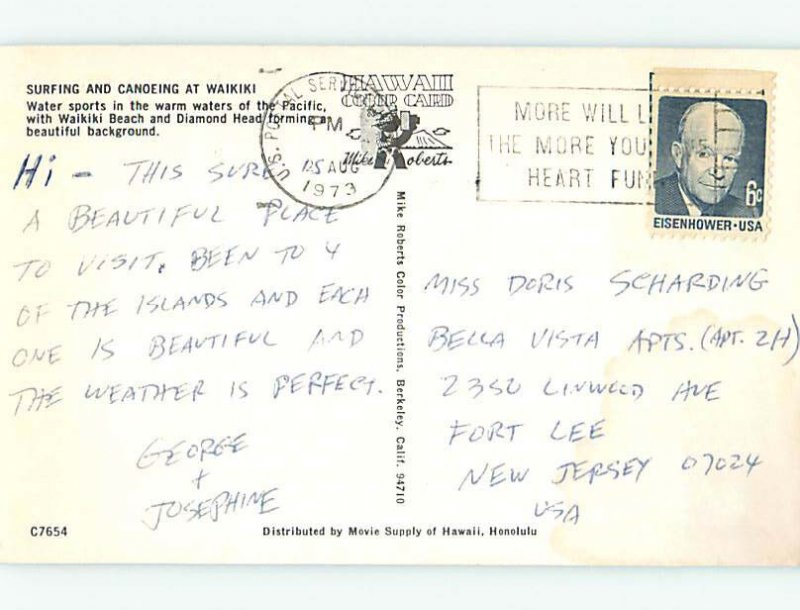 SURFING AND CANOEING AT WAIKIKI
Water sports in the warm waters of the Pacific,
with Waikiki Beach and Diamond Head forming a
beautiful background.
HAWAII
COLOR CARD
Mike Roberts
U.S. POSTAL SERVICE
PM
AUG
1973
MORE WILL L
THE MORE YOU
HEART FUN
6c
EISENHOWER·USA
Hi - THIS SURE IS
A BEAUTIFUL PLACE
TO VISIT. BEEN TO 4
OF THE ISLANDS AND EACH
ONE IS BEAUTIFUL AND
THE WEATHER IS PERFECT.
GEORGE
+
JOSEPHINE
Mike Roberts Color Productions, Berkeley, Calif. 94710
MISS DORIS SCHARDING
BELLA VISTA APTS. (APT. 2H)
2350 LINWOOD AVE
FORT LEE
NEW JERSEY 07024
USA
C7654
Distributed by Movie Supply of Hawaii, Honolulu